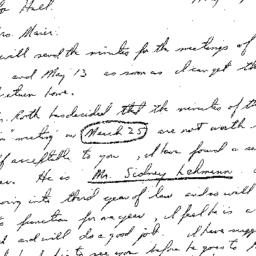 Hall.
Mrs. Maier:
will send the minutes for the meetings of
and May 13 as soon as I can get th
return home.
Roth has decided that the minutes of th
meeting on March 25 are not worth
if acceptable to you, I have found a se
He is Mr. Sidney Lehmann.
going into third year of law and so will
to function for one year, I feel he is a
and will do a good job. I have sugg
to see now before he goes to